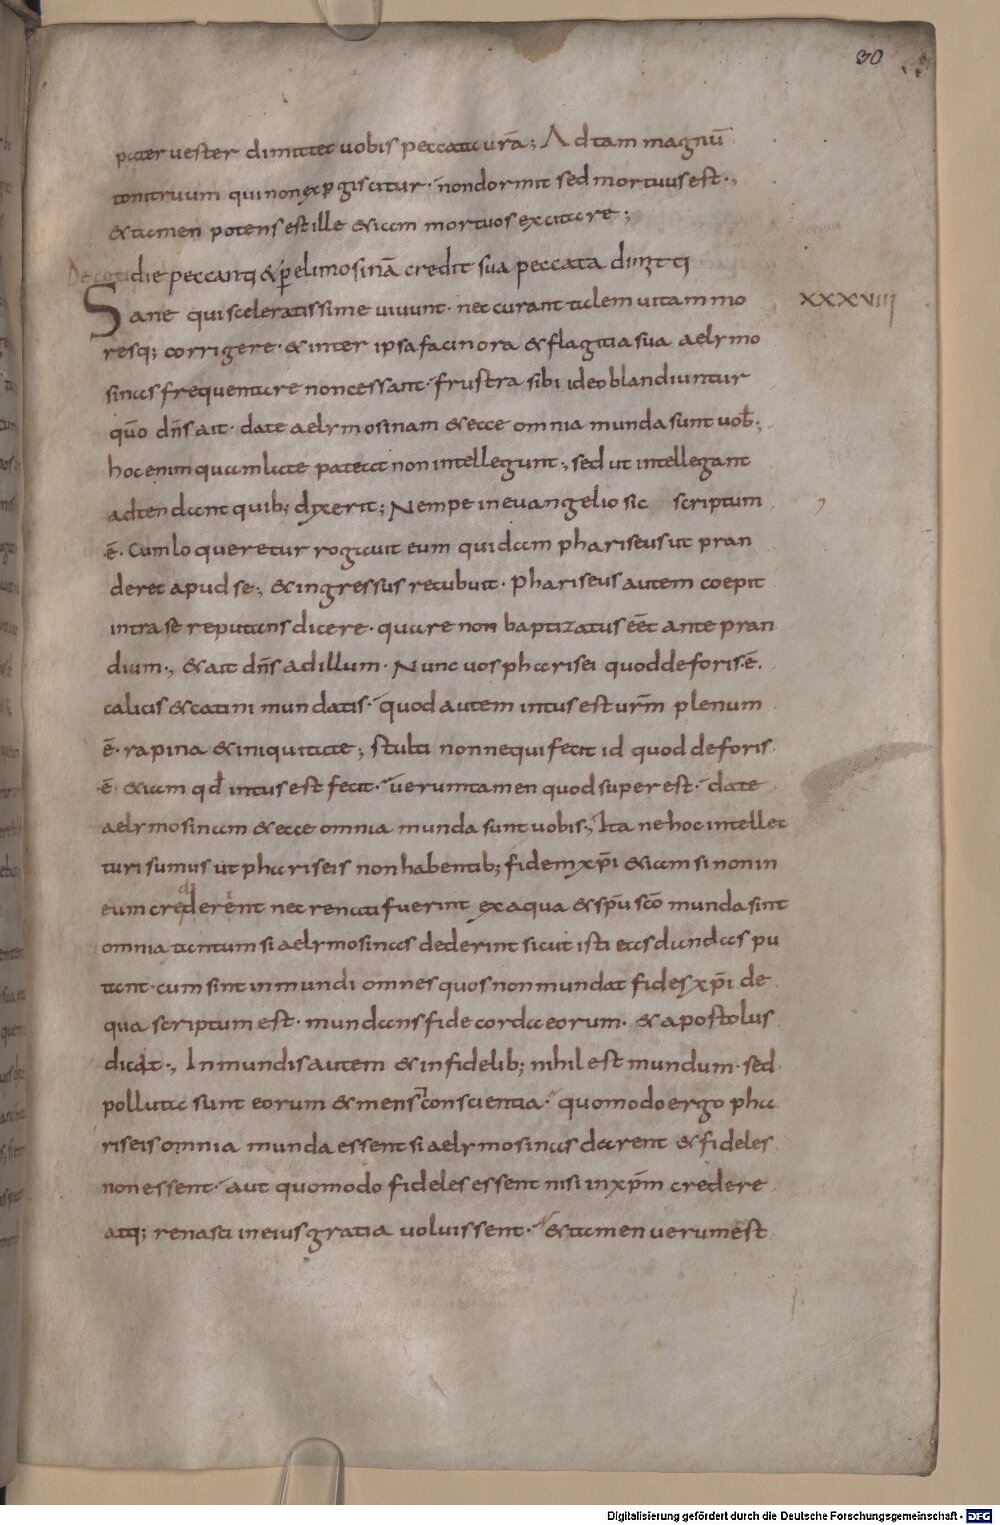 30
pater vester dimittet vobis peccata vr̄a; Ad tam magnū
tonitruum qui non exp̱giscitur· non dormit sed mortuus est·,
& tamen potens est ille &iam mortuos excitare;
De cotidie peccanti & p̱ elimosinā credit sua peccata dimitti
Sane qui sceleratissime uiuunt· nec curant talem uitam mo
XXXVIIII
resq; corrigere· & inter ipsa facinora & flagitia sua aelymo
sinas frequentare non cessant· frustra sibi ideo blandiuntur
quō dn̄s ait· date aelymosinam & ecce omnia munda sunt uob̄;,
hoc enim quam late pateat non intellegunt·, sed ut intellegant
adtendant quib; dixerit; Nempe in euangelio sic scriptum
ē· Cum loqueretur rogauit eum quidam phariseus ut pran
deret apud se·, & ingressus recubuit· Phariseus autem coepit
intra se reputans dicere· quare non baptizatus eēt ante pran
dium·, & ait dn̄s ad illum· Nunc uos pharisei quod deforis·ē·
calicis & catini mundatis· quod autem intus est ur̄m plenum
ē· rapina & iniquitate; stulti nonne qui fecit id quod deforis
·ē· &iam qd̄ intus est fecit· uerumtamen quod superest· date
aelymosinam & ecce omnia munda sunt uobis·, Ita ne hoc intellec
turi sumus ut phariseis non habentib; fidem xp̄i &iam si non in
eum crederent nec renati fuerint ex aqua & sp̄u sc̄o munda sint
omnia tantum si aelymosinas dederint sicut isti eas dandas pu
tant· cum sint inmundi omnes quos non mundat fides xp̄i de
qua scriptum est· mundans fide corda eorum· & apostolus
dicat·, Inmundis autem & infidelib; nihil est mundum· sed
polluta sunt eorum & mens & conscientia· quomodo ergo pha
riseis omnia munda essent si aelymosinas darent & fideles
non essent· aut quomodo fideles essent nisi in xp̄m credere
atq; renasci in eius gratia uoluissent· & tamen uerum est
Digitalisierung gefördert durch die Deutsche Forschungsgemeinschaft - DFG